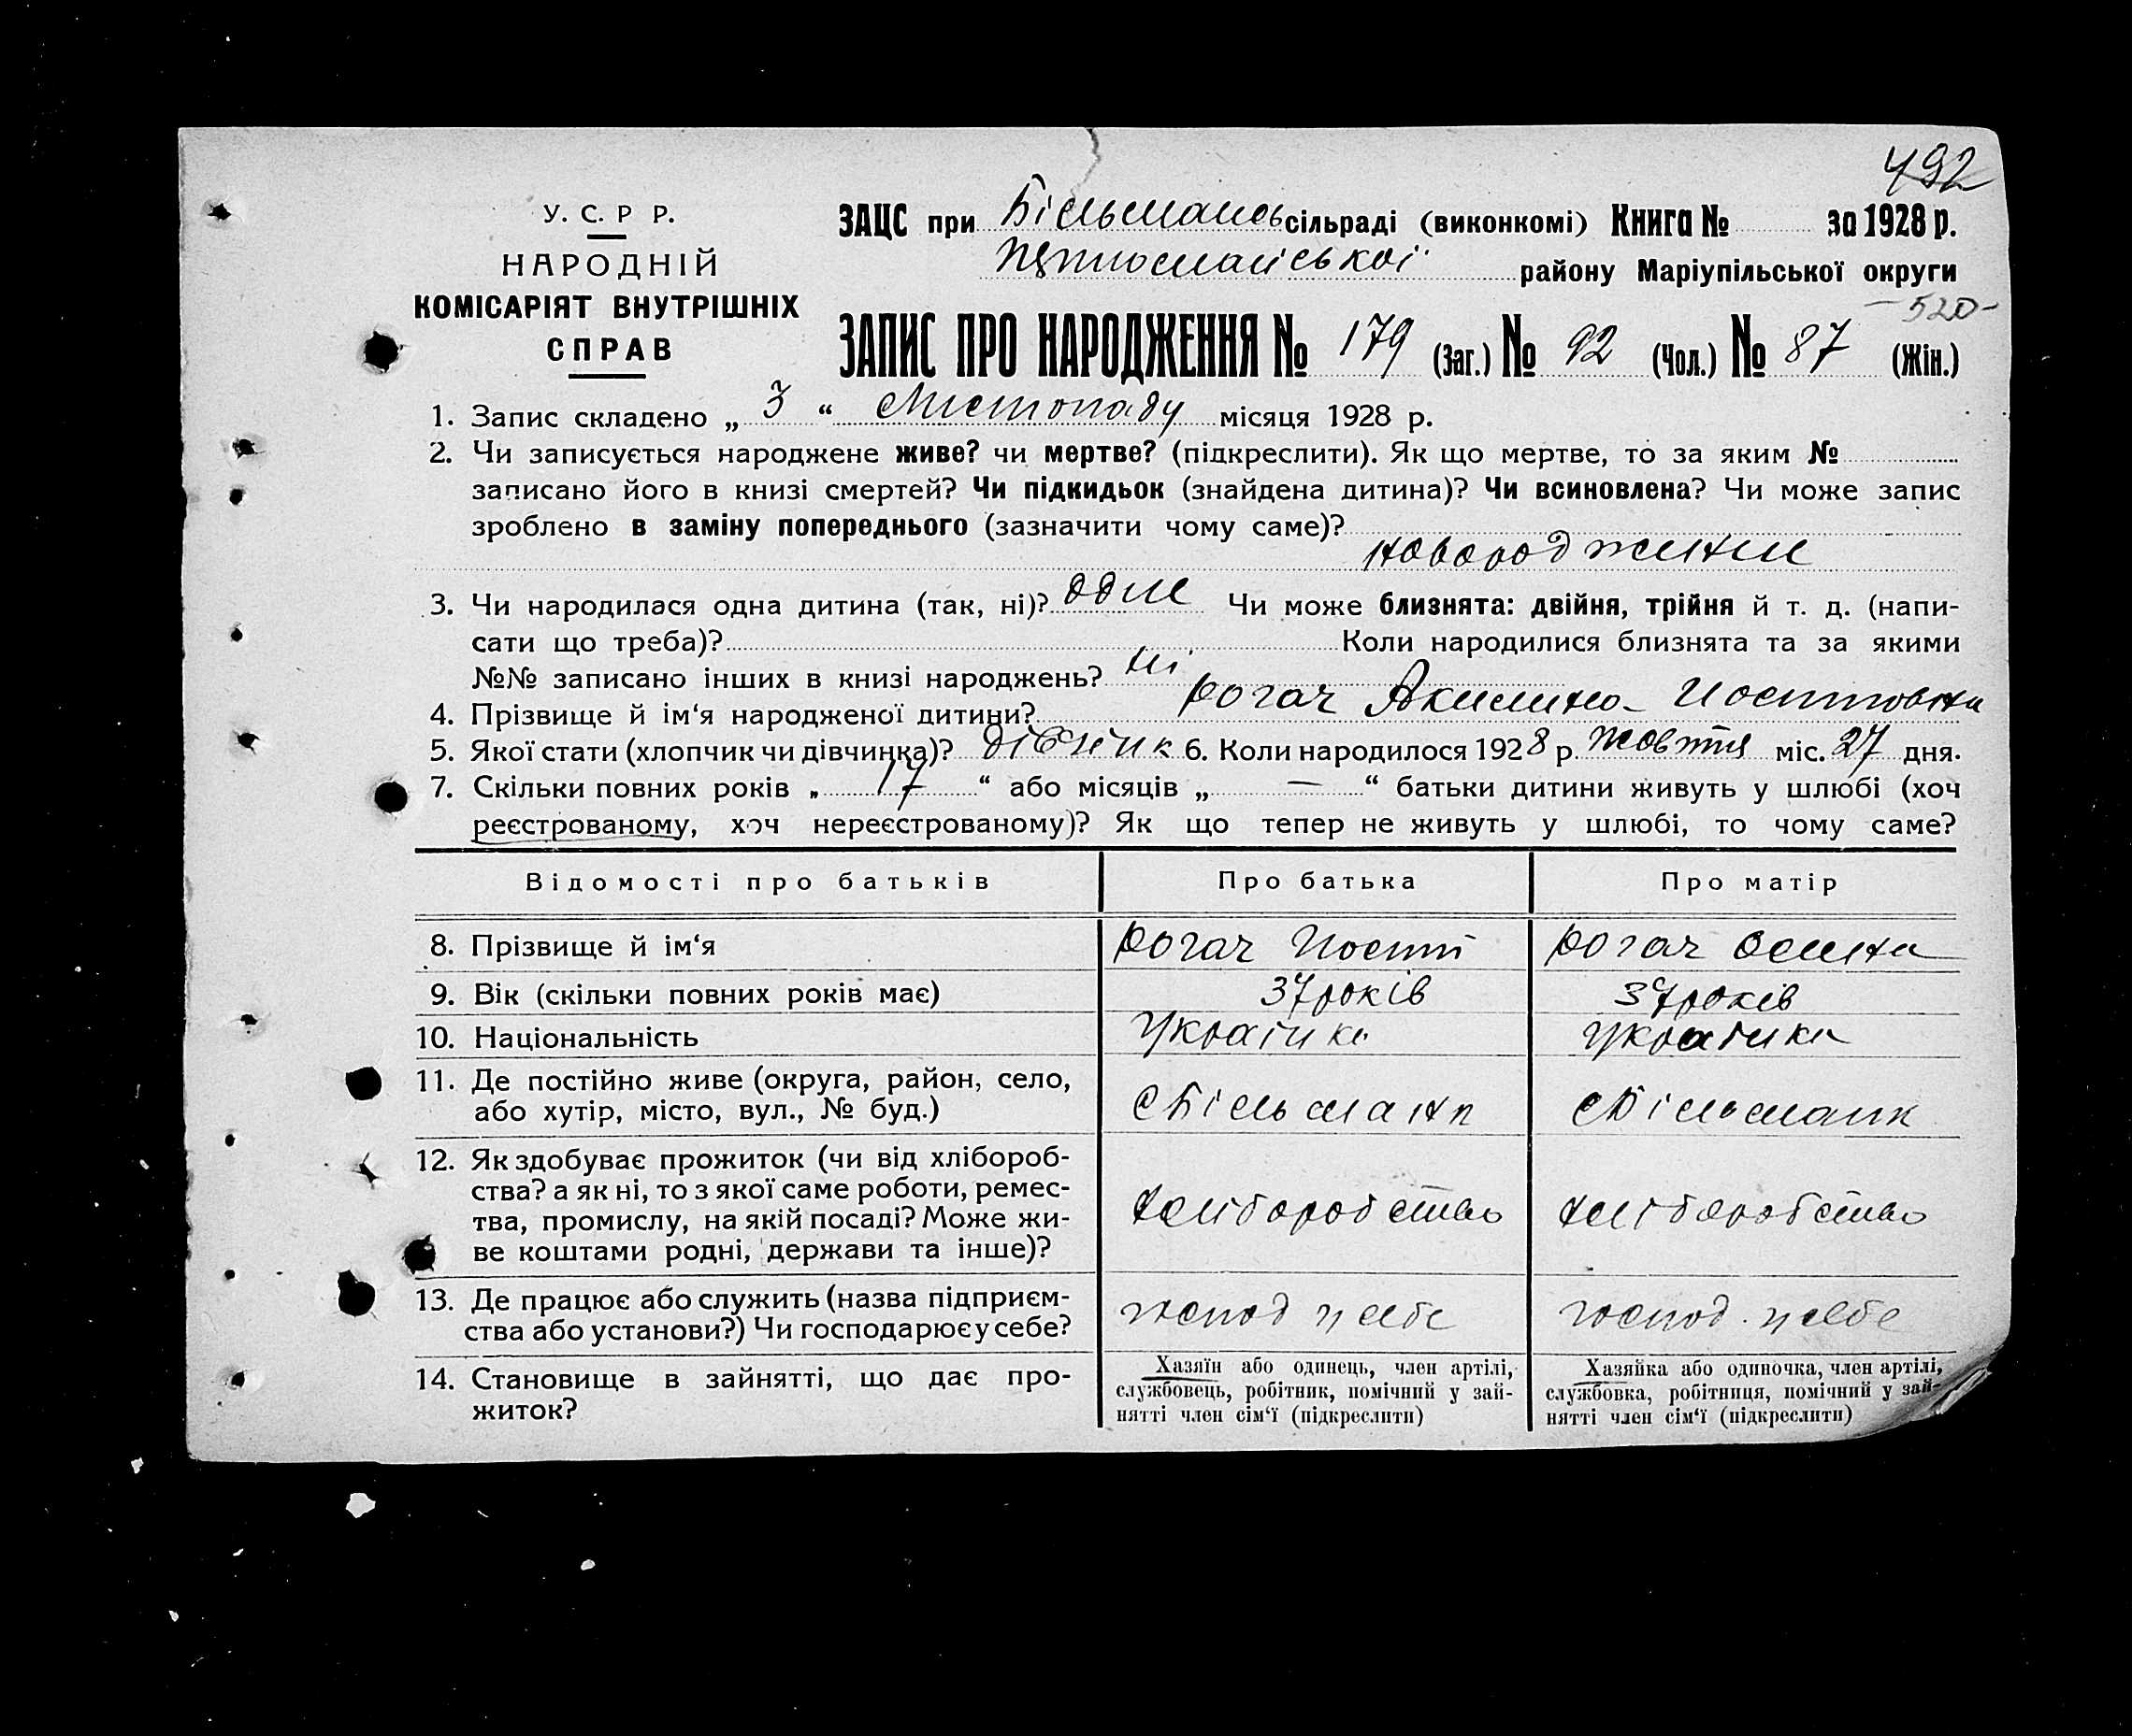 492
У. С. Р Р.
НАРОДНІЙ
КОМІСАРІЯТ ВНУТРІШНІХ
СПРАВ
ЗАЦС при Більмансь сільраді (виконкомі) Книга № за 1928 р.
району Маріупільської округи
-520-
ЗАПИС ПРО НАРОДЖЕННЯ № 179 (Заг.) № 92 (Чол.) № 87 (Жін.)
1. Запис складено „ 3 “ Листопаду місяця 1928 р.
2. Чи записується народжене живе? чи мертве? (підкреслити). Як що мертве, то за яким №
записано його в книзі смертей? Чи підкидьок (знайдена дитина)? Чи всиновлена? Чи може запис
зроблено в заміну попереднього (зазначити чому саме)?
3. Чи народилася одна дитина (так, ні)? одне Чи може близнята: двійня, трійня й т. д. (напи-
сати що треба)? Коли народилися близнята та за якими
№№ записано інших в книзі народжень? ні
4. Прізвище й ім‘я народженої дитини? Рогач Акилина
5. Якої стати (хлопчик чи дівчинка)? 6. Коли народилося 1928 р. Жовтня міс. 27 дня.
7. Скільки повних років „ 17 “ або місяців „ — “ батьки дитини живуть у шлюбі (хоч
реєстрованому, хоч нереєстрованому)? Як що тепер не живуть у шлюбі, то чому саме?
Відомості про батьків Про батька Про матір
8. Прізвище й ім‘я Рогач Рогач
9. Вік (скільки повних років має) 37 років 37 років
10. Національність Україн Україн
11. Де постійно живе (округа, район, село,
або хутір, місто, вул., № буд.) с Більманк с Більманк
12. Як здобуває прожиток (чи від хлібороб-
ства? а як ні, то з якої саме роботи, ремес-
тва, промислу, на якій посаді? Може жи-
ве коштами родні, держави та інше)? хліборобство хліборобство
13. Де працює або служить (назва підприєм-
ства або установи?) Чи господарює у себе? господ у себе господ. у себе
14. Становище в зайнятті, що дає про-
житок?
Хазяїн або одинець, член артілі,
службовець, робітник, помічний у зай-
нятті член сім‘ї (підкреслити)
Хазяйка або одиночка, член артілі,
службовка, робітниця, помічний у зай-
нятті член сім‘ї (підкреслити)